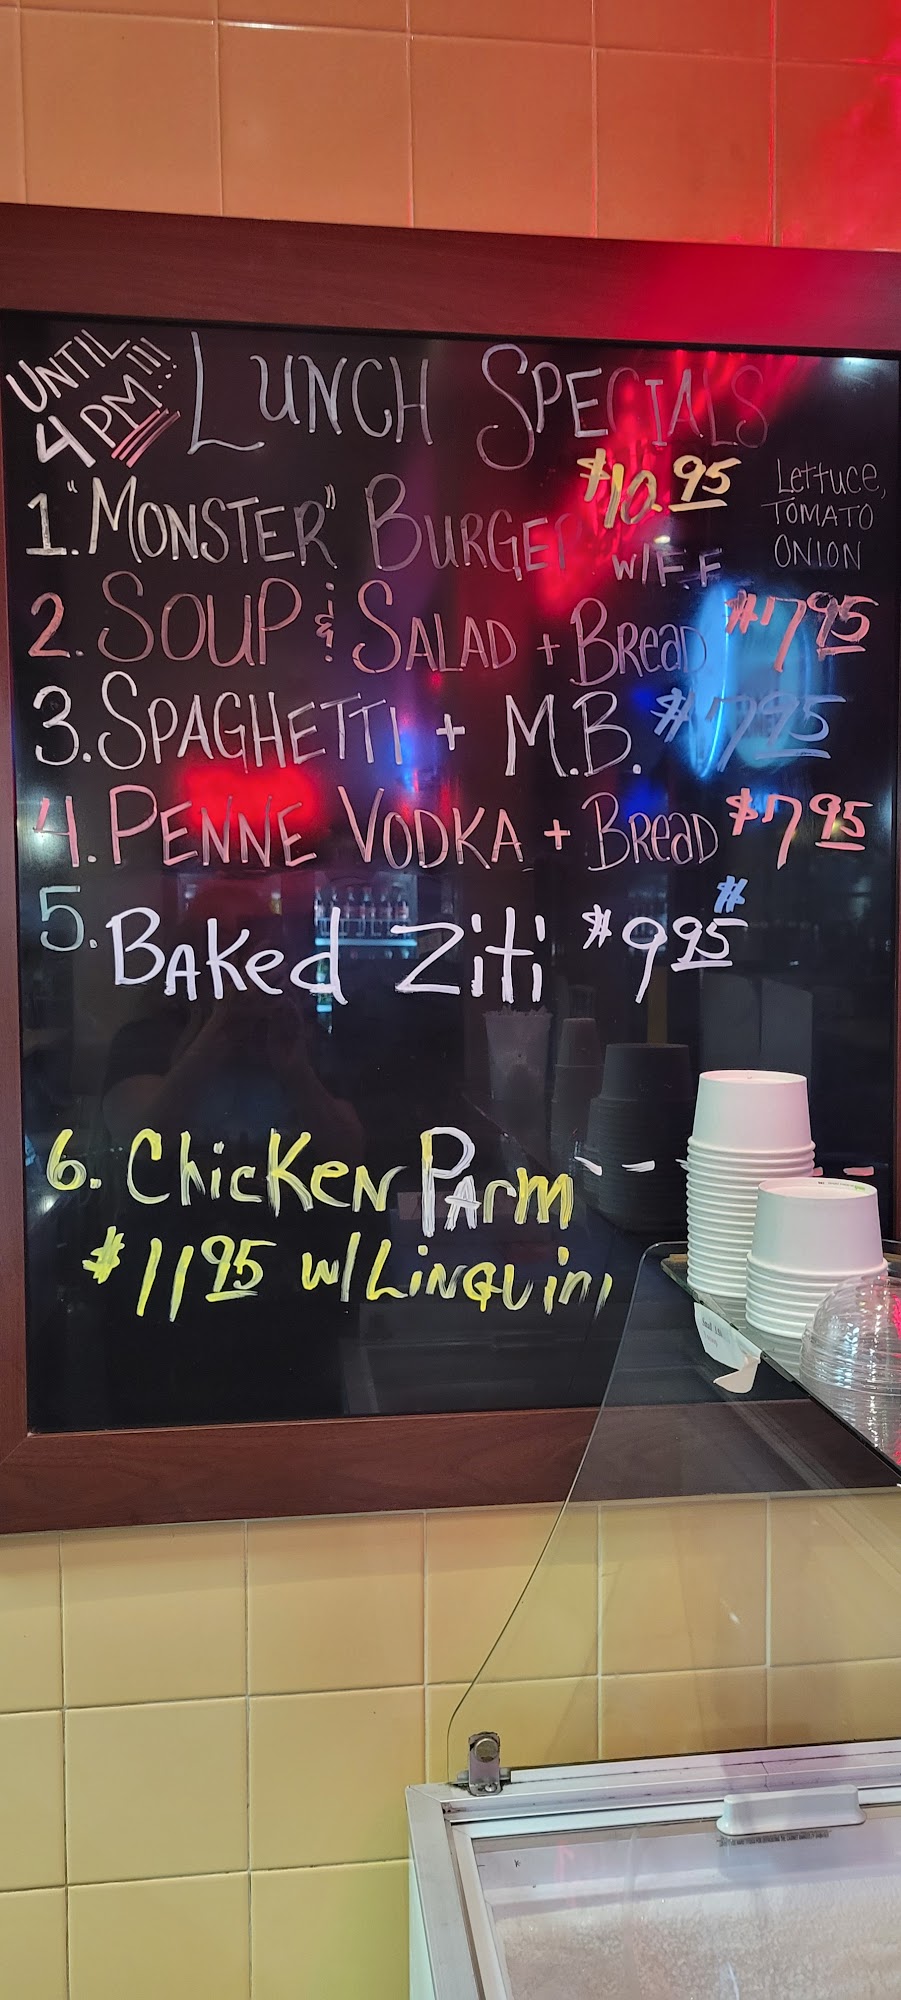 UNTIL
4 PM!!!
LUNCH SPECIALS
1. "MONSTER" BURGER $10.95
W/F.F
Lettuce,
TOMATO
ONION
2. SOUP & SALAD + BREAD $7.95
3. SPAGHETTI + M.B. $7.95
4. PENNE VODKA + BREAD $7.95
5. BAKed Ziti $9.95
6. ChicKeN PArm
$11.95 w/LiNQuini